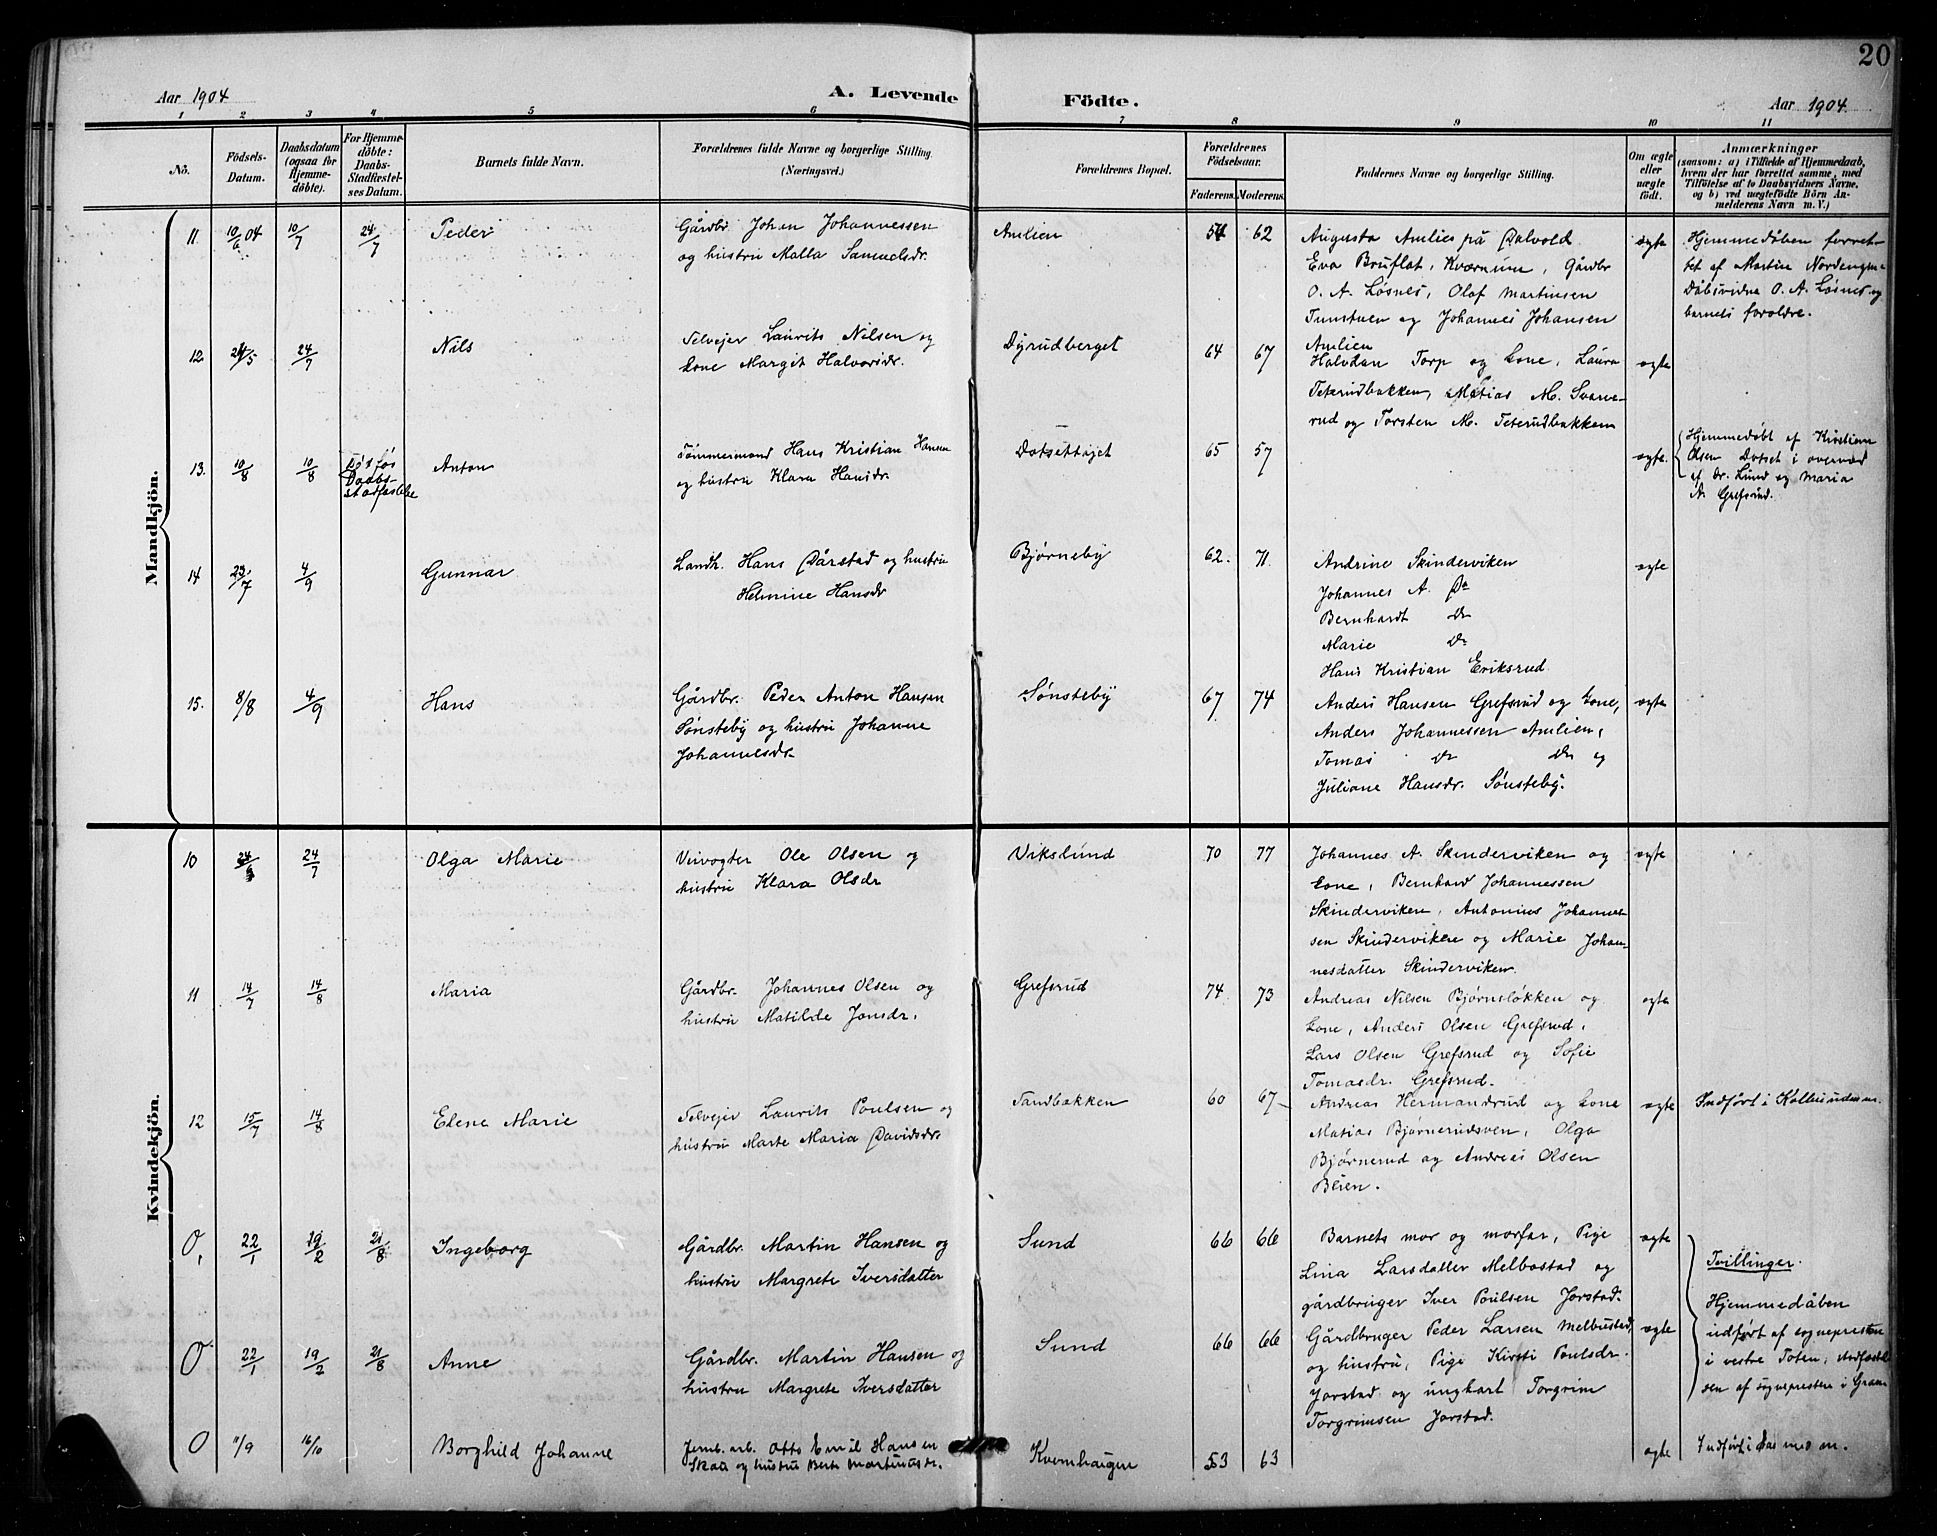 20
Aar 1904
A. Levende
Födte.
Aar 1904
1 2 3 4 5 6 7 8 9 10 11
No.
Födsels-Datum.
Daabsdatum (ogsaa for Hjemmedöbte).
For Hjemmedöbte: Daabs-Stadfæstelses Datum.
Barnets fulde Navn.
Forældrenes fulde Navne og borgerlige Stilling. (Næringsvei.)
Forældrenes Bopæl.
Forældrenes Födselsaar.
Faderens. Moderens.
Faddernes Navne og borgerlige Stilling.
Om ægte eller uægte födt.
Anmærkninger
(saasom: a) i Tilfælde af Hjemmedaab, hvem der har forrettet samme, med Tilföielse af to Daabsvidners Navne, og b) ved uægtefödte Börn Anmelderens Navn m. V.)
Mandkjön.
11. 10/6 04 10/7 24/7 Peder
Gårdbr. Johan Johannessen
og hustru Malla Samuelsdr.
Amlien 54 62
Augusta Amlien på Dalvold
Eva Bruflat, Kværnum, Gårdbr
O. A. Løsnes, Olaf Martinsen
Tunstuen og Johannes Johansen
Amlien
ægte
Hjemmedåben forret-
tet af Martin
Dåbsvidne O. A. Løsnes og
barnets forældre.
12. 24/5 24/7 Nils
Selvejer Laurits Nilsen og
kone Margit Halvorsdr.
Dyrudberget 64 67
Halvdan Torp og kone, Laura
Teterudbakken, Matias M. Svarve-
rud og Torsten M. Teterudbakken
ægte
13. 10/8 10/8
Daabs-
stadfæstelse
Anton
Tømmermand Hans Kristian Hansen
og hustru Klara Hansdr.
65 57
ægte.
Hjemmedøbt af Kristian
Olsen Dotset i overvær
af Dr. Lund og Maria
A. Grefsrud.
14 23/7 4/9 Gunnar
Landh. Hans Dårstad og hustru
Helmine Hansdr
Bjørneby 62. 71.
Andrine Skinderviken
Johannes A. Do
Bernhardt Do
Marie Do
Hans Kristian Eriksrud
ægte
15. 8/8 4/9 Hans
Gårdbr. Peder Anton Hansen
Sønsteby og hustru Johanne
Johannesdr.
Sønsteby 67 74
Anders Hansen Grefsrud og kone,
Anders Johannessen Amlien,
Tomas do do og
Juliane Hansdr. Sønsteby.
ægte
Kvindekjön.
10 24/7 Olga Marie
Veivogter Ole Olsen og
hustru Klara Olsdr
Vikslund 70 77
Johannes A. Skinderviken og
kone, Bernhard Johannessen
Skinderviken, Antonius Johannes-
sen Skinderviken og Marie Johan-
nesdatter Skinderviken.
ægte
11 14/7 14/8 Maria
Gårdbr. Johannes Olsen og
hustru Matilde Jonsdr.
Grefsrud 74 73
Andreas Nilsen Bjørnsløkken og
kone, Anders Olsen Grefsrud,
Lars Olsen Grefsrud og Sofie
Tomasdr. Grefsrud.
ægte
12 15/7 14/8 Elene Marie
Selvejer Laurits Poulsen og
hustru Marte Maria Davidsdr.
Sandbakken 60 67
Andreas Hermandrud og kone
Matias Bjørnerudsven, Olga
Bjørnerud og Andreas Olsen
Beien.
ægte
Indført i
0, 22/1 19/2 21/8 Ingeborg
Gårdbr. Martin Hansen og
hustru Margrete Iversdatter
Sund 66 66
Barnets mor og morfar, Pige
Lina Larsdatter Melbostad og
gårdbruger Iver Poulsen Jorstad.
ægte
Tvillinger.
Hjemmedåben
udført af sognepresten
i vestre Toten,
sen af sognepresten i Gran
0 22/1 19/2 21/8 Anne
Gårdbr. Martin Hansen og
hustru Margrete Iversdatter
Sund 66 66
Gårdbruger Peder Larsen Melbustad,
og hustru, Pige Kirsti Poulsdr.
Jorstad og ungkarl Torgrim
Torgrimsen Jorstad.
ægte
0 11/9 16/10 Borghild Johanne
Jernb. arb. Otto Emil Hansen
Skau og hustru Berte Martinusdr.
Kvernhaugen 53 63
ægte
Indført i